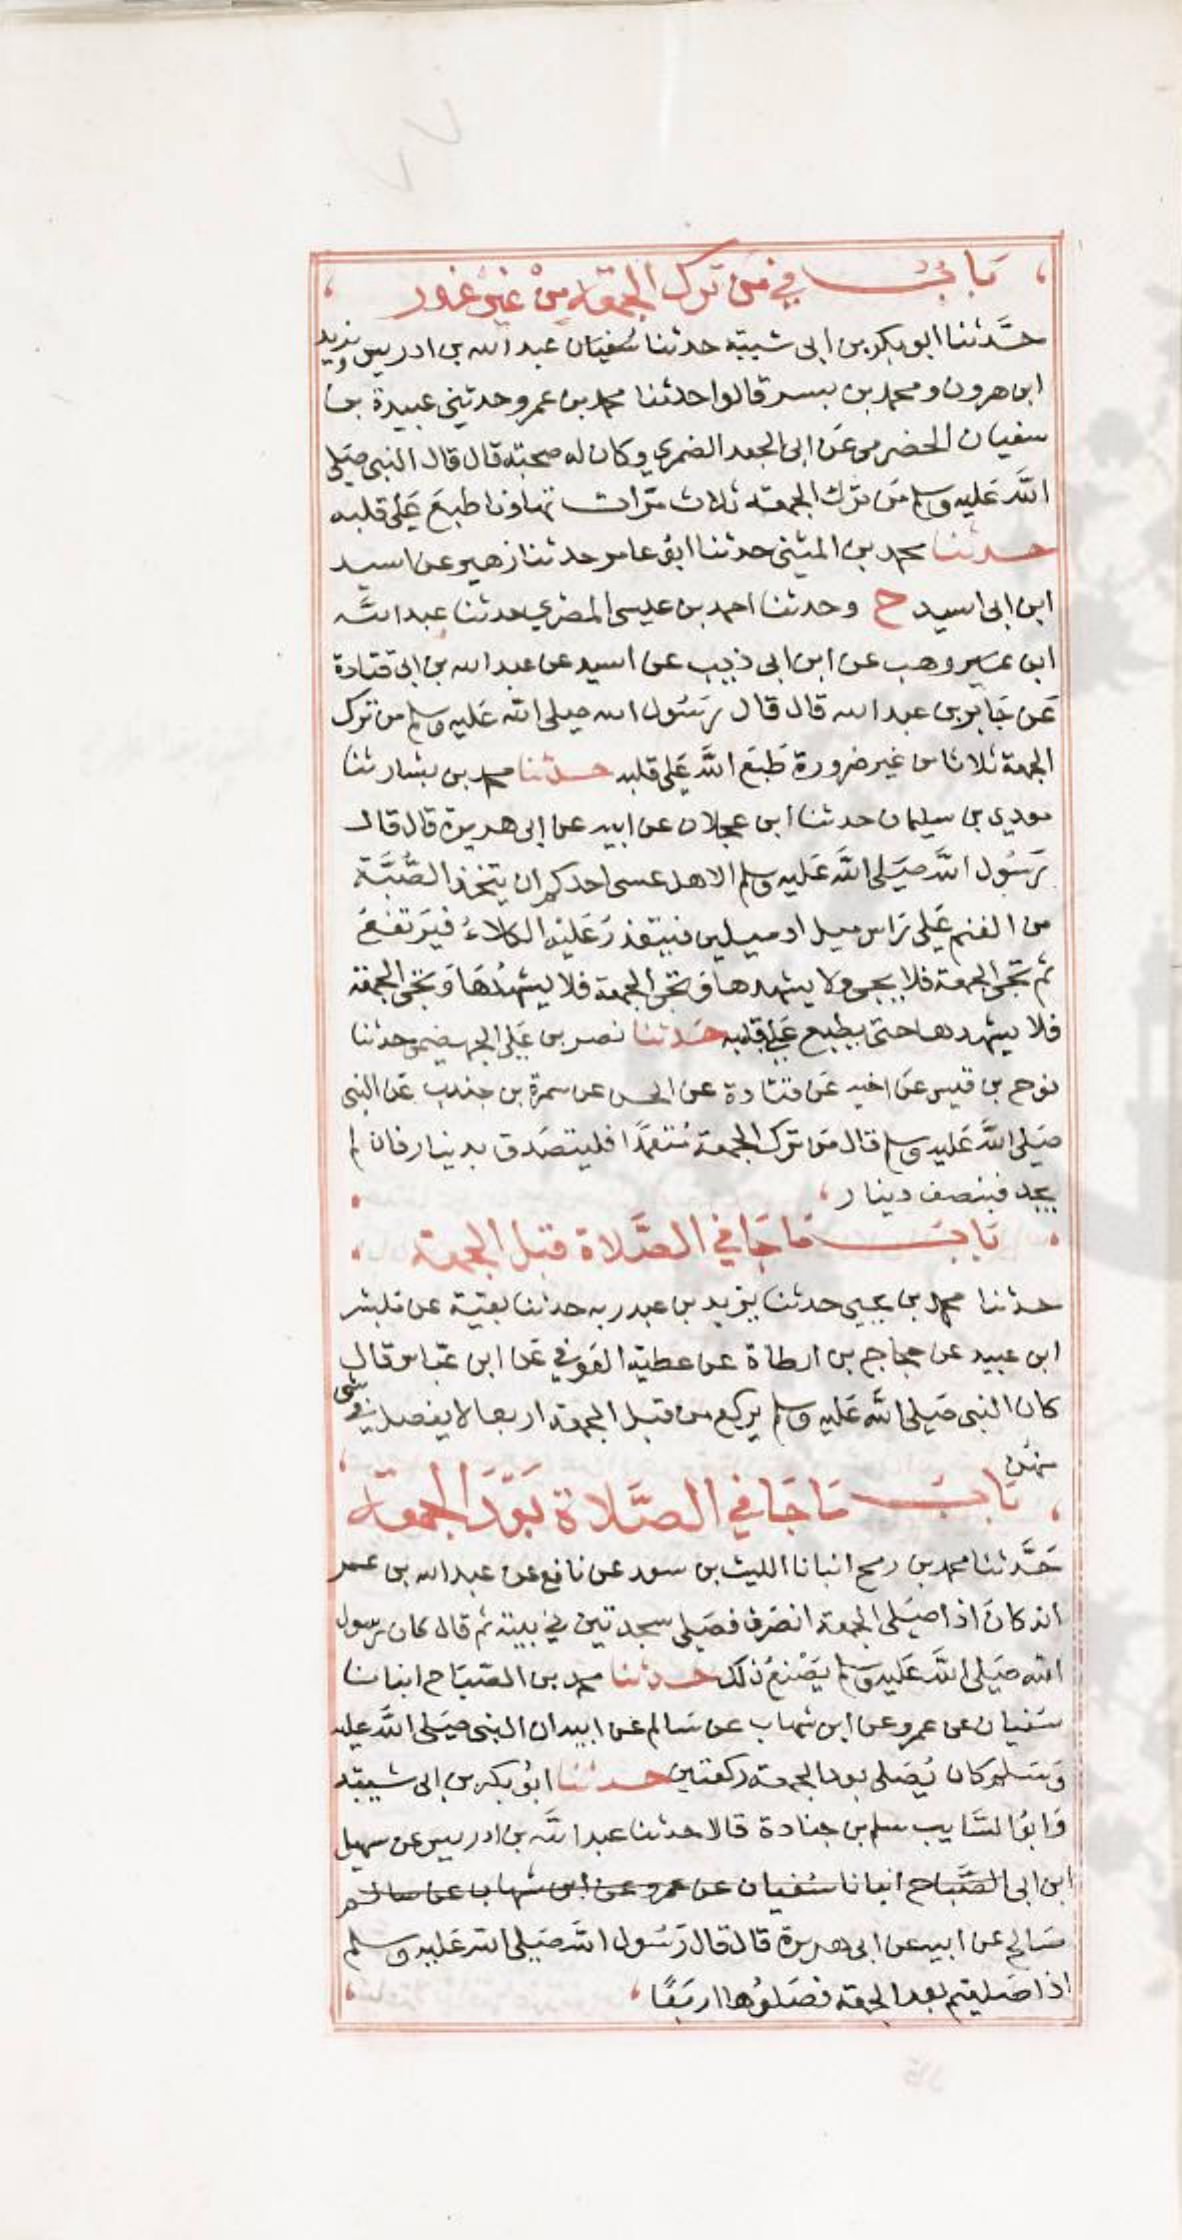 باب في من ترك الجمعة من غير عذر
حدثنا ابو بكر بن ابى شيبة حدثنا سفيان عبد الله بن ادريس ويزيد
ابن هرون ومحمد بن بسر قالوا حدثنا محمد بن عمرو حدثني عبيدة بن
سفيان الحضرمى عن ابى الجعد الضمري وكان له صحبة قال قال النبى صلى
الله عليه وسلم من ترك الجمعة ثلاث مرات تهاونا طبع على قلبه
حدثنا محمد بن المثنى حدثنا ابو عامر حدثنا زهير عن اسيد
ابن ابى اسيد ح وحدثنا احمد بن عيسى المصري حدثنا عبد الله
ابن وهب عن ابن ابى ذيب عن اسيد عن عبد الله بن ابى قتادة
عن جابر بن عبد الله قال قال رسول الله صلى الله عليه وسلم من ترك
الجمعة ثلاثا من غير ضرورة طبع الله على قلبه حدثنا محمد بن بشار ثنا
مودي بن سليمان حدثنا ابن عجلان عن ابيه عن ابى هريرة قال قال
رسول الله صلى الله عليه وسلم الا هل عسى احدكم ان يتخذ الصبة
من الغنم على راس ميل او ميلين فيتعذر عليه الكلاء فيرتفع
ثم تجى الجمعة فلا يجى ولا يشهدها وتجى الجمعة فلا يشهدها وتجى الجمعة
فلا يشهدها حتى يطبع على قلبه حدثنا نصر بن على الجهضمى حدثنا
نوح بن قيس عن اخيه عن قتادة عن الحسن عن سمرة بن جندب عن النبى
صلى الله عليه وسلم قال من ترك الجمعة متعمدا فليتصدق بدينار فان لم
يجد فبنصف دينار
باب ما جا في الصلاة قبل الجمعة
حدثنا محمد بن يحيى حدثنا يزيد بن عبد ربه حدثنا بقية عن مبشر
ابن عبيد عن حجاج بن ارطاة عن عطية العوفي عن ابن عباس قال
كان النبى صلى الله عليه وسلم يركع من قبل الجمعة اربعا لا يفصل في شى
منهن
باب ما جا في الصلاة بعد الجمعة
حدثنا محمد بن رمح انبانا الليث بن سعد عن نافع عن عبد الله بن عمر
انه كان اذا صلى الجمعة انصرف فصلى سجدتين في بيته ثم قال كان رسول
الله صلى الله عليه وسلم يصنع ذلك حدثنا محمد بن الصباح انبانا
سفيان عن عمرو عن ابن شهاب عن سالم عن ابيه ان النبى صلى الله عليه
وسلم كان يصلى بعد الجمعة ركعتين حدثنا ابو بكر بن ابى شيبة
وابو السايب سلم بن جنادة قالا حدثنا عبد الله بن ادريس عن سهيل
ابن ابى الصباح انبانا سفيان عن عمرو عن ابن شهاب عن سالم
صالح عن ابيه عن ابى هريرة قال قال رسول الله صلى الله عليه وسلم
اذا صليتم بعد الجمعة فصلوها اربعا